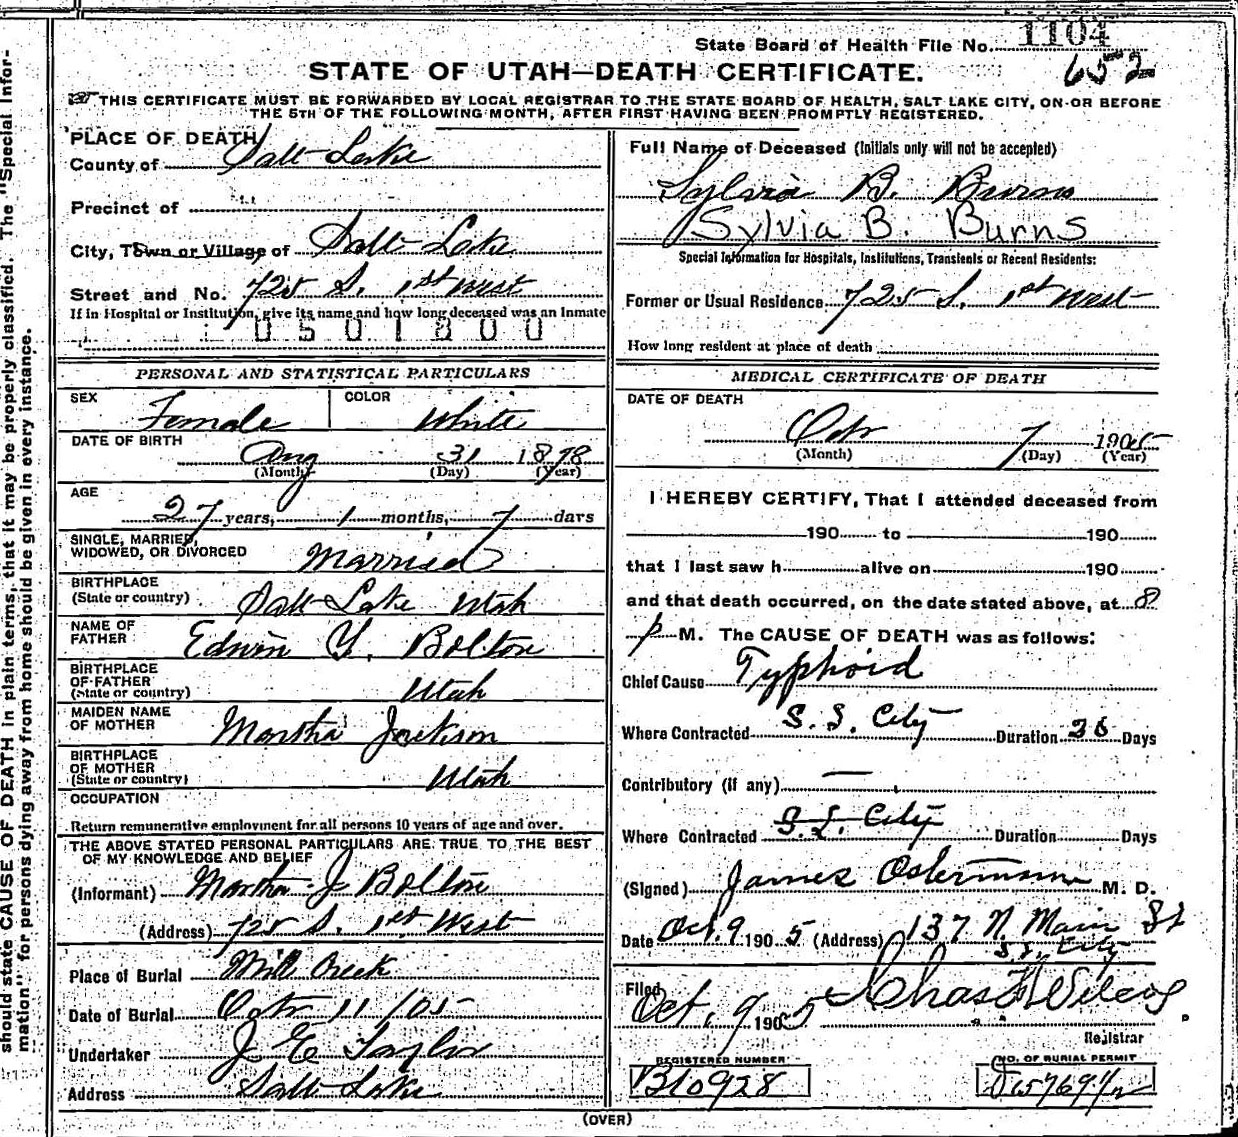 should state CAUSE OF DEATH in plain terms, that it may be properly classified. The "Special Infor-
mation" for persons dying away from home should be given in every instance.
State Board of Health File No. 1104
652
STATE OF UTAH—DEATH CERTIFICATE.
THIS CERTIFICATE MUST BE FORWARDED BY LOCAL REGISTRAR TO THE STATE BOARD OF HEALTH, SALT LAKE CITY, ON OR BEFORE
THE 5TH OF THE FOLLOWING MONTH, AFTER FIRST HAVING BEEN PROMPTLY REGISTERED.
PLACE OF DEATH
County of Salt Lake
Precinct of
City, Town or Village of Salt Lake
Street and No. 725 S. 1st West
If in Hospital or Institution, give its name and how long deceased was an Inmate
0501800
PERSONAL AND STATISTICAL PARTICULARS
SEX Female COLOR White
DATE OF BIRTH
Aug 31 1878
(Month) (Day) (Year)
AGE
27 years, 1 months, 7 days
SINGLE, MARRIED,
WIDOWED, OR DIVORCED Married
BIRTHPLACE
(State or country) Salt Lake Utah
NAME OF
FATHER Edwin Y. Bolton
BIRTHPLACE
OF FATHER
(State or country) Utah
MAIDEN NAME
OF MOTHER Martha Jackson
BIRTHPLACE
OF MOTHER
(State or country) Utah
OCCUPATION
Return remunerative employment for all persons 10 years of age and over.
THE ABOVE STATED PERSONAL PARTICULARS ARE TRUE TO THE BEST
OF MY KNOWLEDGE AND BELIEF
(Informant) Martha J Bolton
(Address) 725 S. 1st West
Place of Burial Mill Creek
Date of Burial Octr 11/05
Undertaker J E Taylor
Address Salt Lake
Full Name of Deceased (Initials only will not be accepted)
Sylvia B. Burns
Sylvia B. Burns
Special Information for Hospitals, Institutions, Transients or Recent Residents:
Former or Usual Residence 725 S. 1st West
How long resident at place of death
MEDICAL CERTIFICATE OF DEATH
DATE OF DEATH
Octr 7 1905
(Month) (Day) (Year)
I HEREBY CERTIFY, That I attended deceased from
190 to 190
that I last saw h alive on 190
and that death occurred, on the date stated above, at 8
p M. The CAUSE OF DEATH was as follows:
Chief Cause Typhoid
Where Contracted S. L. City Duration Days
Contributory (if any) —
Where Contracted S. L. City Duration Days
(Signed) James Ostermann M. D.
Date Oct. 9 1905 (Address) 137 N. Main St
S. L. City
Filed
Oct. 9 1905 Chas F Wilcox
Registrar
REGISTERED NUMBER NO. OF BURIAL PERMIT
B10928
(OVER)